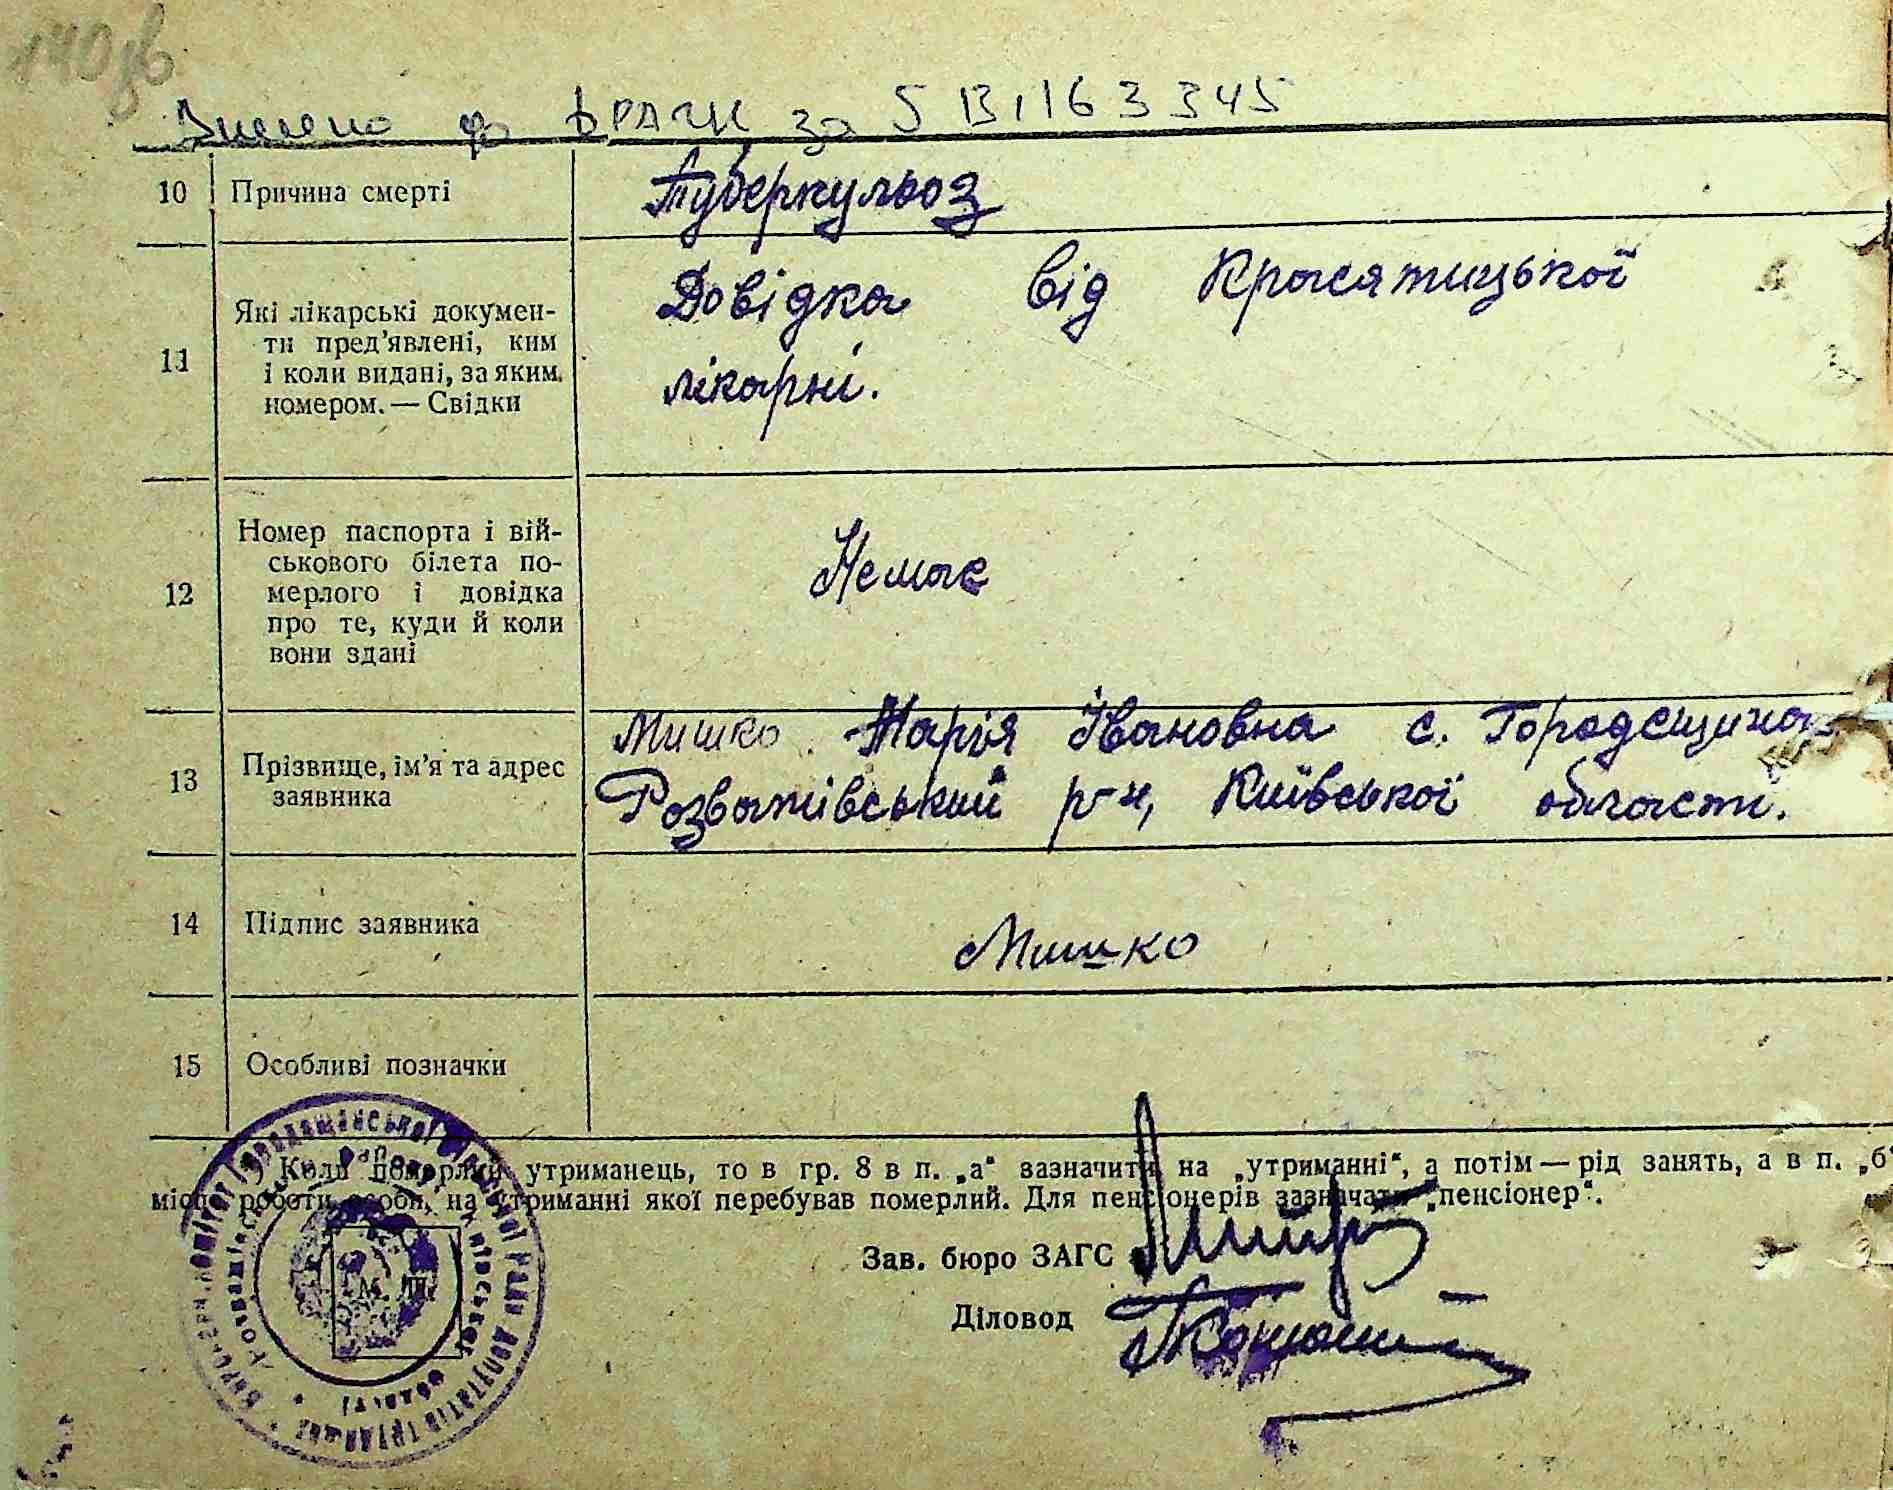 140зв
Внесено до ДРАЦС за 5 Ві 163345
10 Причина смерті Туберкульоз
11 Які лікарські докумен-
ти пред'явлені, ким
і коли видані, за яким
номером. — Свідки
Довідка від Красятицької
лікарні.
12 Номер паспорта і вій-
ськового білета по-
мерлого і довідка
про те, куди й коли
вони здані
Немає
13 Прізвище, ім'я та адрес
заявника
Мишко Марія Івановна с. Городещина
Розважівський р-н, Київської області.
14 Підпис заявника Мишко
15 Особливі позначки
Коли померлий утриманець, то в гр. 8 в п. „а“ зазначити на „утриманні“, а потім — рід занять, а в п. „б“
місце роботи особи, на утриманні якої перебував померлий. Для пенсіонерів зазначати „пенсіонер“.
Зав. бюро ЗАГС
Діловод
М. П.
ради депутатів трудящих
області